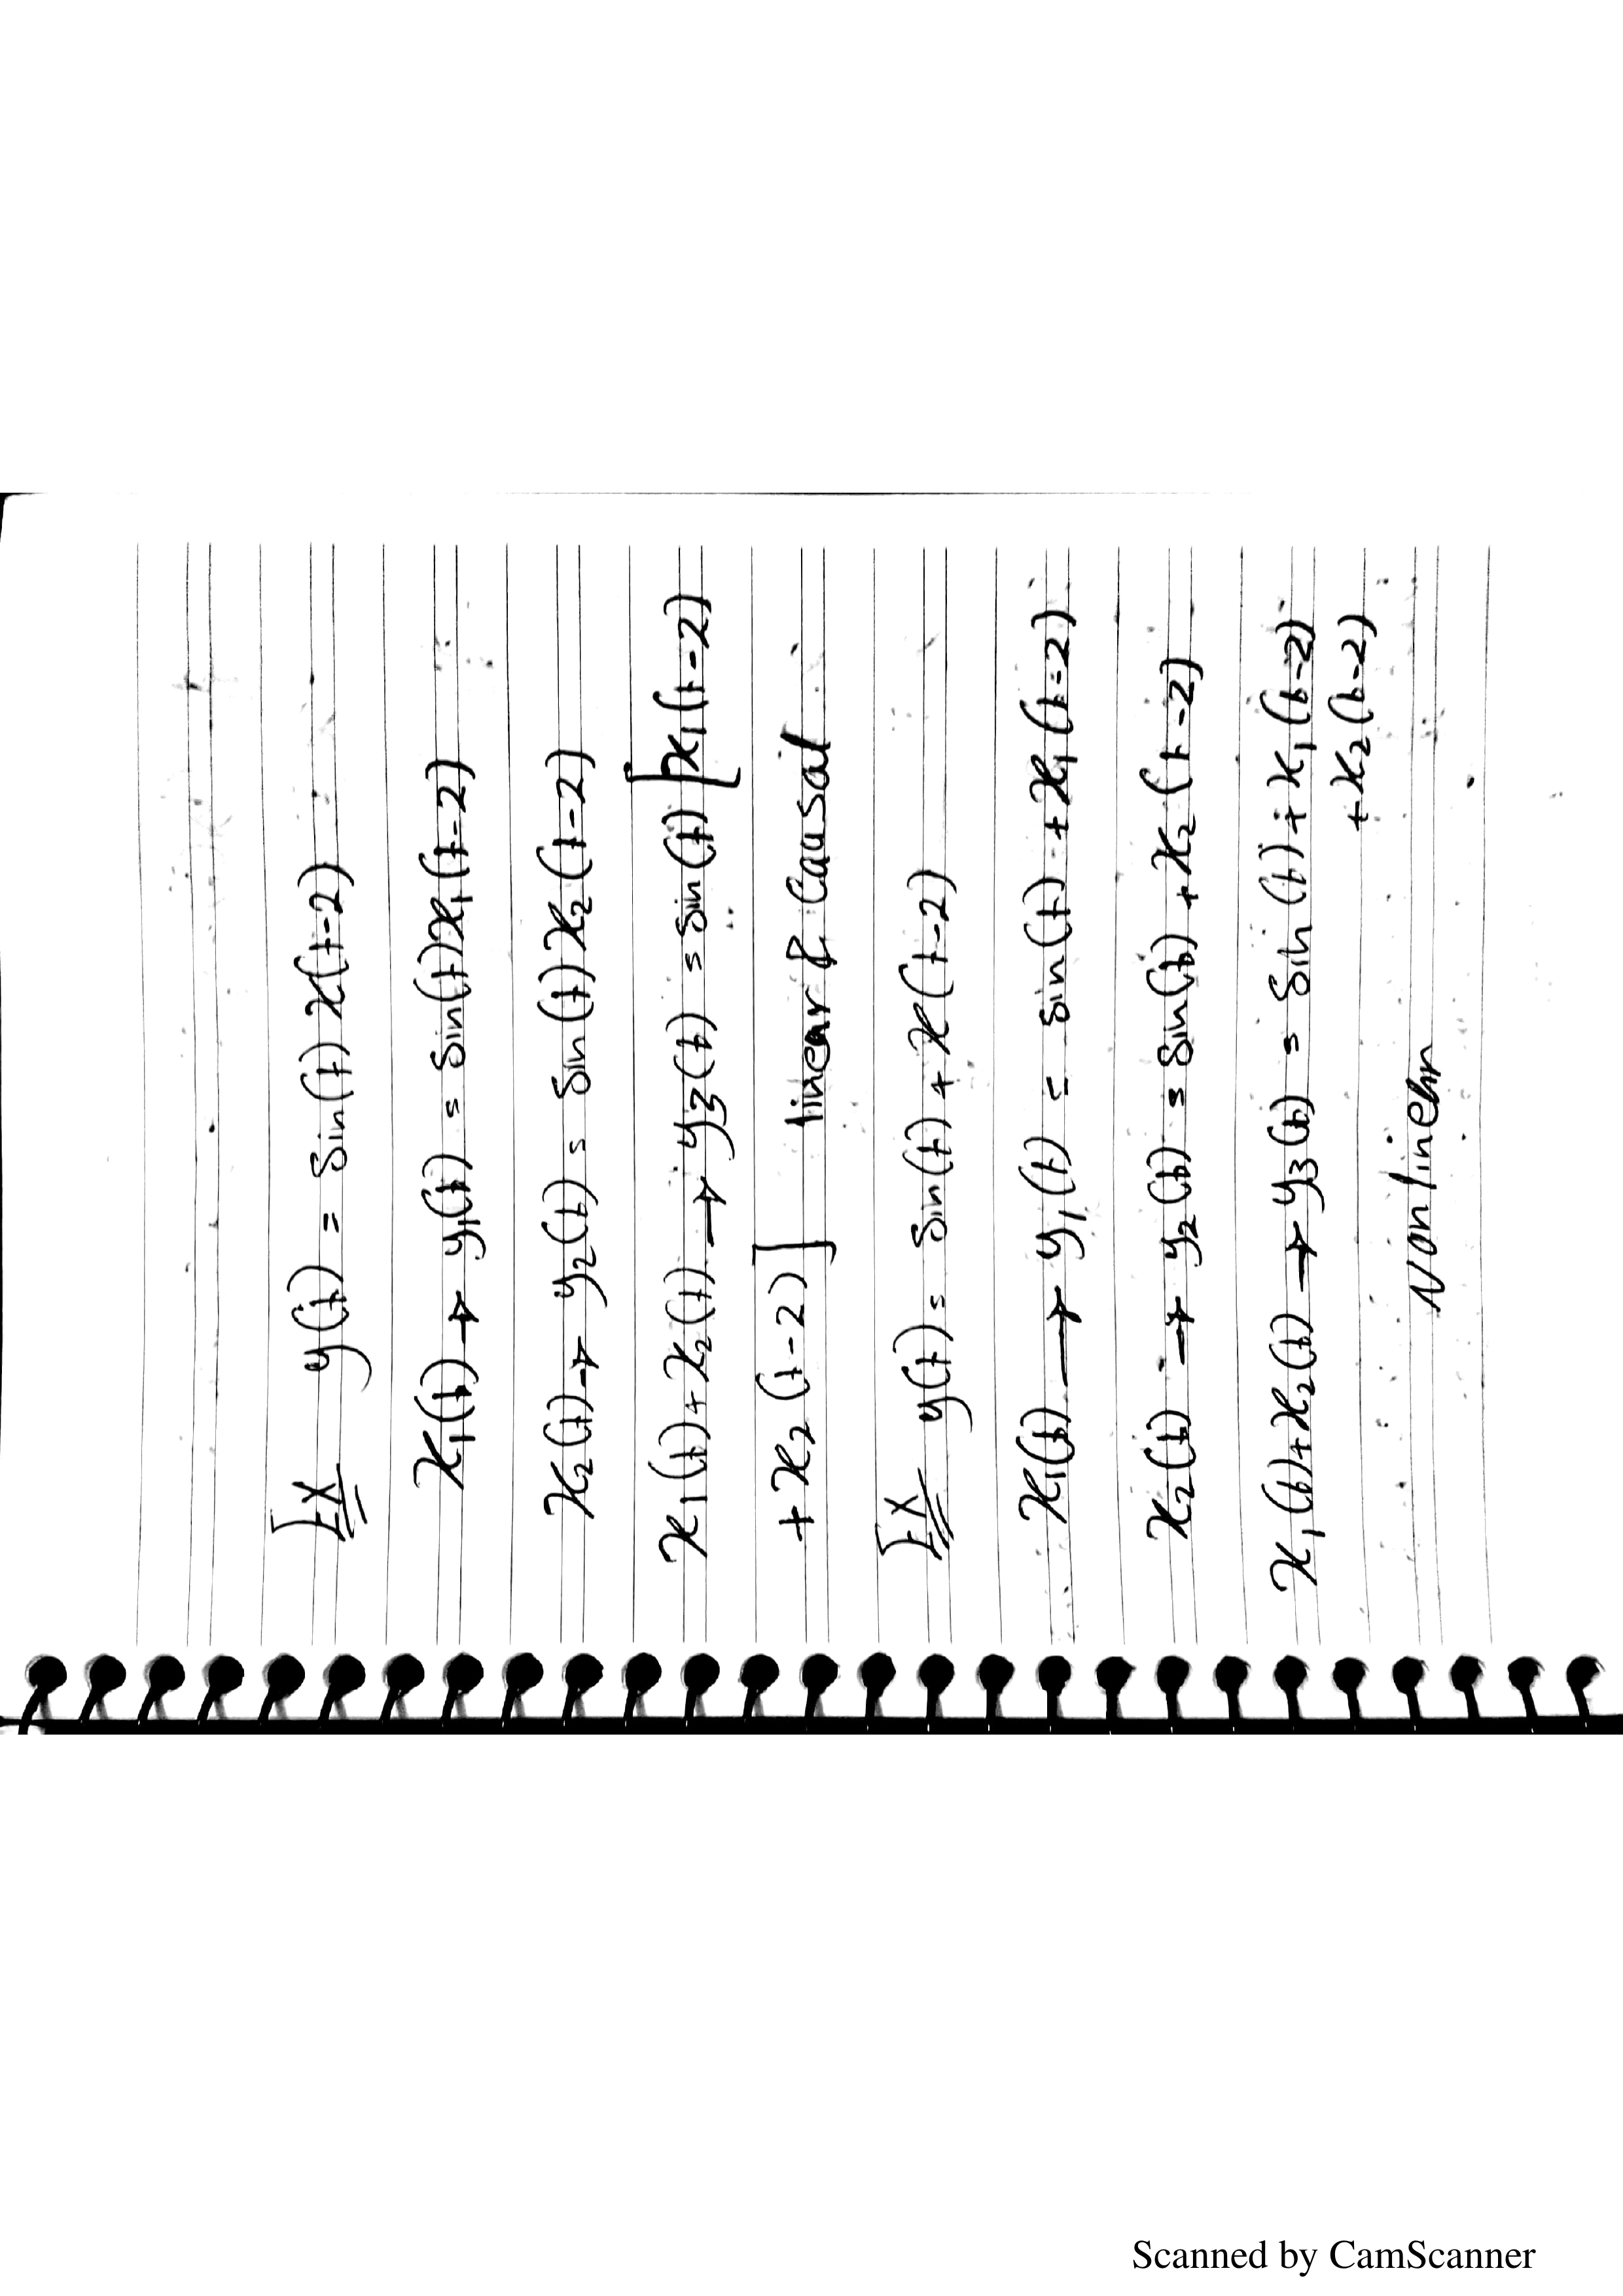 Ex y(t) = sin(t) x(t-2)
x₁(t) → y₁(t) = sin(t) x₁(t-2)
x₂(t) → y₂(t) = sin(t) x₂(t-2)
x₁(t) + x₂(t) → y₃(t) = sin(t) [x₁(t-2)
+ x₂(t-2)] linear & Causal
Ex y(t) = sin(t) + x(t-2)
x₁(t) → y₁(t) = sin(t) + x₁(t-2)
x₂(t) → y₂(t) = sin(t) + x₂(t-2)
x₁(t) + x₂(t) → y₃(t) = sin(t) + x₁(t-2)
+ x₂(t-2)
Non linear
Scanned by CamScanner